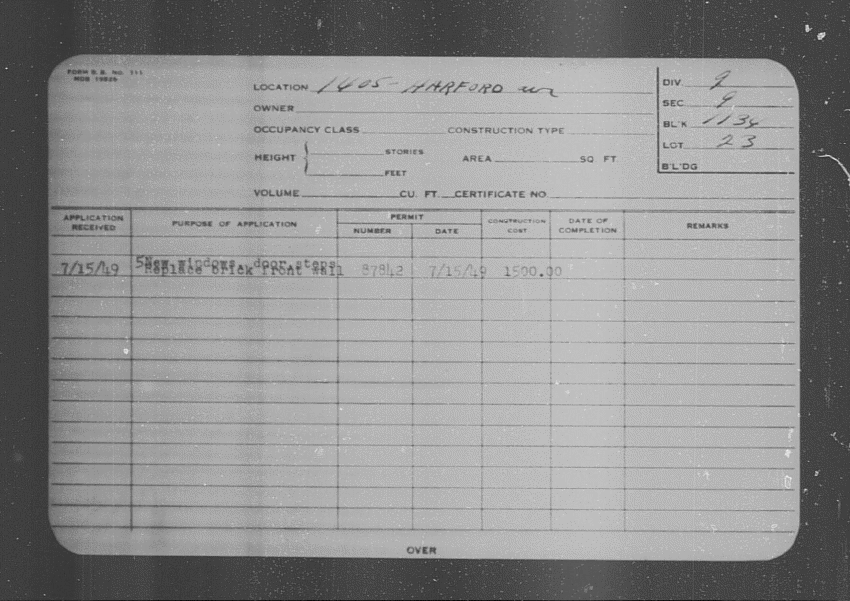 FORM B. B. NO. 111
LOCATION 1405 - HARFORD
OWNER
OCCUPANCY CLASS CONSTRUCTION TYPE
HEIGHT { STORIES AREA SQ FT
FEET
VOLUME CU. FT. CERTIFICATE NO.
DIV. 9
SEC. 9
BL'K 1134
LOT 23
B'L'DG
APPLICATION RECEIVED PURPOSE OF APPLICATION PERMIT NUMBER DATE CONSTRUCTION COST DATE OF COMPLETION REMARKS
5New windows, door,steps
7/15/49 Replace brick front wall 87842 7/15/49 1500.00
OVER